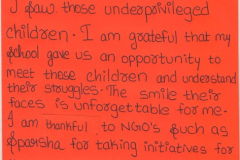 I saw those underprivileged
children. I am grateful that my
school gave us an opportunity to
meet these children and understand
their struggles. The smile their
faces is unforgettable for me.
I am thankful to NGO's such as
Sparsha for taking initiatives for